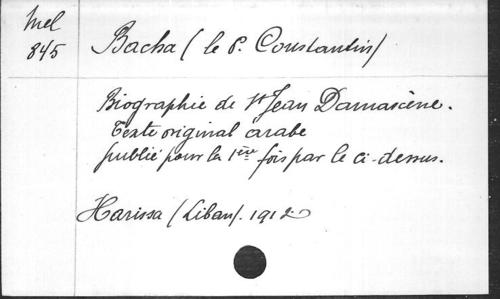 Mel
845
Bacha (le P. Constantin)
Biographie de St Jean Damascène.
Texte original arabe
publié pour la 1ère fois par le ci-dessus.
Harissa (Liban). 1912